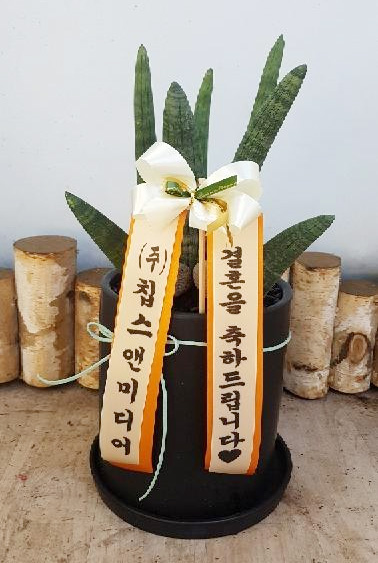 (주)칩스앤미디어
결혼을 축하드립니다♥